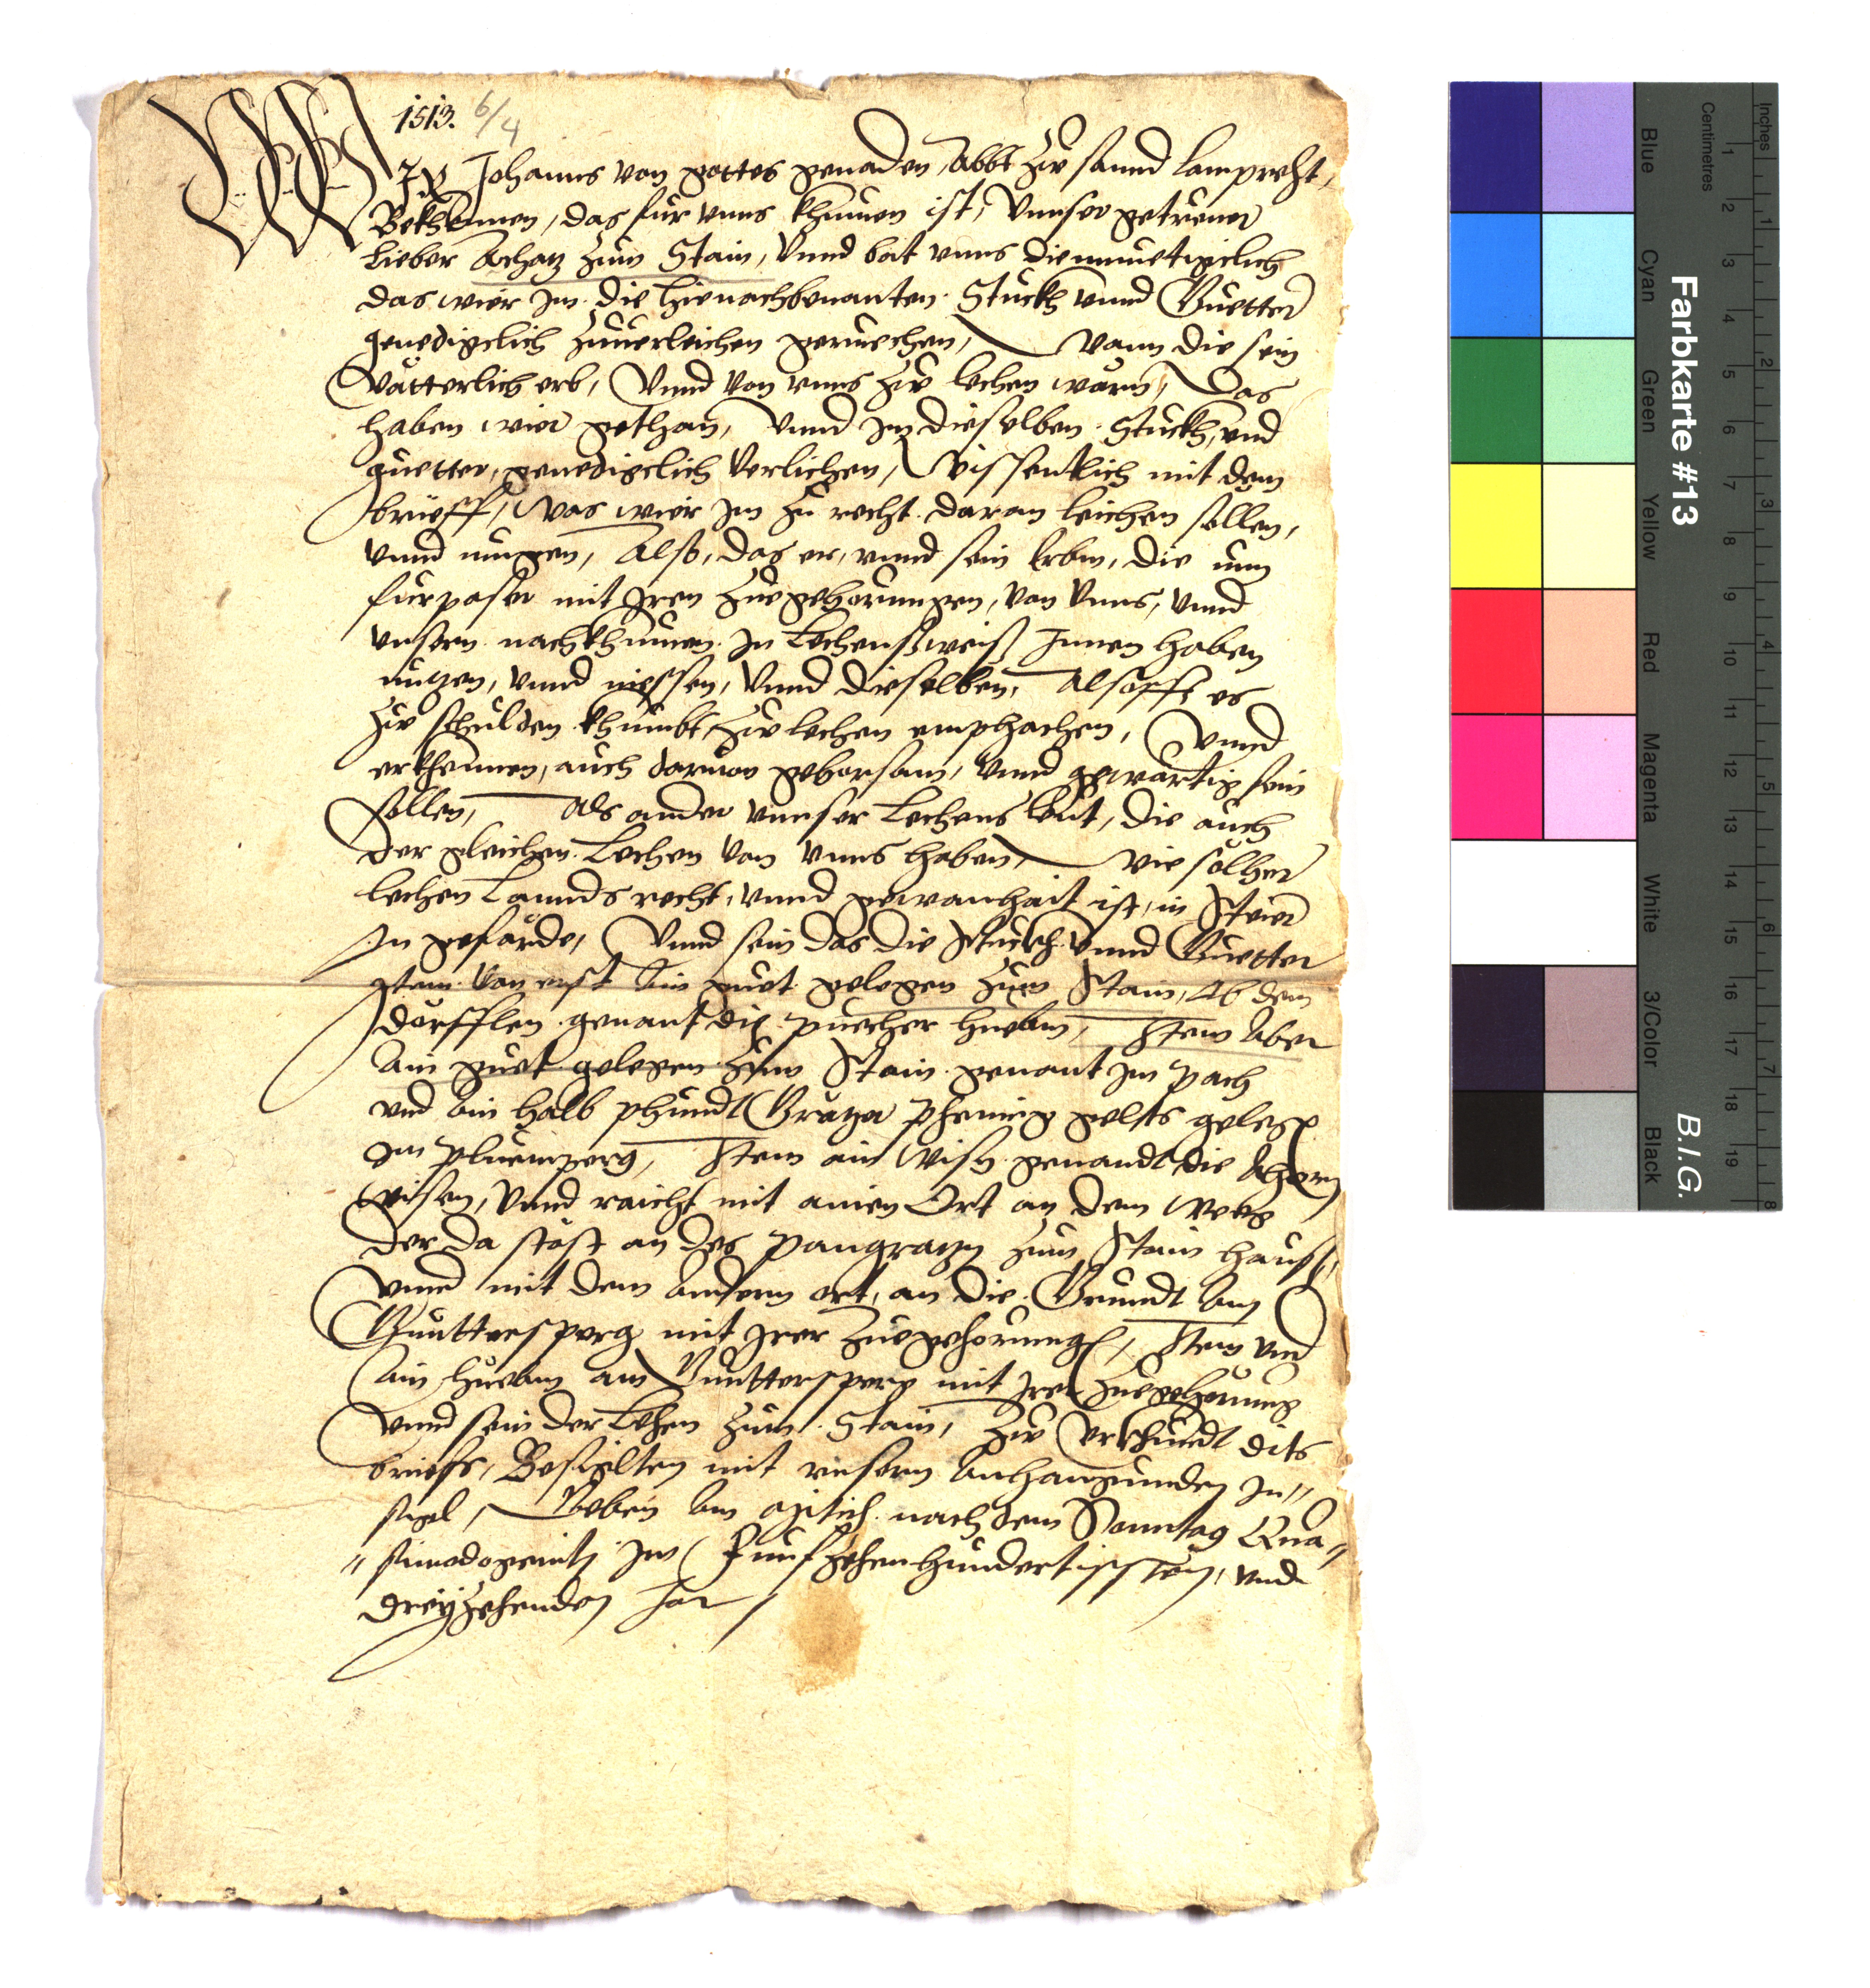 1513. 6/4
WIR Johanns von gottes genaden, Abbt zw sannd Lamprecht,
Bekhennen, das fur vnns khumen ist, Vnnser getrewer
Lieber Achatz zum Stain, Vnnd bat vnns diemuetigclich
das wier Im die hienachbenanten Stuckh vnnd Guetter
genedigclich zuuerleichen geruechen, Wann die sein
Vätterlich erb, Vnnd von vnns zw lechen wärn, Das
haben wier gethan, Vnnd Im dieselben Stuckh, vnd
guetter, genedigclich Verlichen, Wissentlich mit dem
brieff, Was wier Im zu recht daran leichen sollen,
vnnd mugen, Also, das er, vnnd sein Erbm, die nun
furpaser mit Iren zuegehorungen, von Vnns, Vnnd
vnsern nachkhumen In Lechenßweiß Innen haben
nutzen, Vnnd niessen, Vnnd dieselben, Alsofft es
zw schulden khumbt, zw lechen emphachen, Vnnd
erkhennen, auch daruon gehorsam, Vnnd gewärtig sein
sollen, Als ander vnnser Lechens leut, die auch
der gleichen Lechen von vnns haben, wie solher
lechen Lannds recht, vnnd gewonhait ist, in Steier
On gefärde, Vnnd sein das die Stuckh vnnd Guetter
Item von erst Ain guet gelegen zum Stain, Ab dem
dörfflen genant die puecher Huebm, Item Aber
Ain guet gelegen zum Stain genant Im Pach
vnd Ain halb phundt Grätzer phening gelts gelegen
Im Pluemperg, Item ain Wisen genandt die Ahorn
wisen, Vnnd raicht mit ainen Ort an dem Weeg
der da stöst an des Pangratzn zum Stain hauß,
Vnnd mit dem Andern ort, an die Grundt Am
Gunttersperg mit Irer zuegehorung, Item vnd
Ain Huebm am Gunttersperg mit Irer zuegehorung
Vnnd sein der Lehen zum Stain, zw Vrkhundt dits
brieffs, Besigelten mit vnsern Anhangunden In"
sigel, Geben Am nach dem Sonntag Qua"
"simodogeniti Im Funfzehenhundertisten, vnd
dreyzehenden Jar
Farbkarte #13 B.I.G.
Inches
Centimetres
1 2 3 4 5 6 7 8
1 2 3 4 5 6 7 8 9 10 11 12 13 14 15 16 17 18 19
Blue
Cyan
Green
Yellow
Red
Magenta
White
3/Color
Black